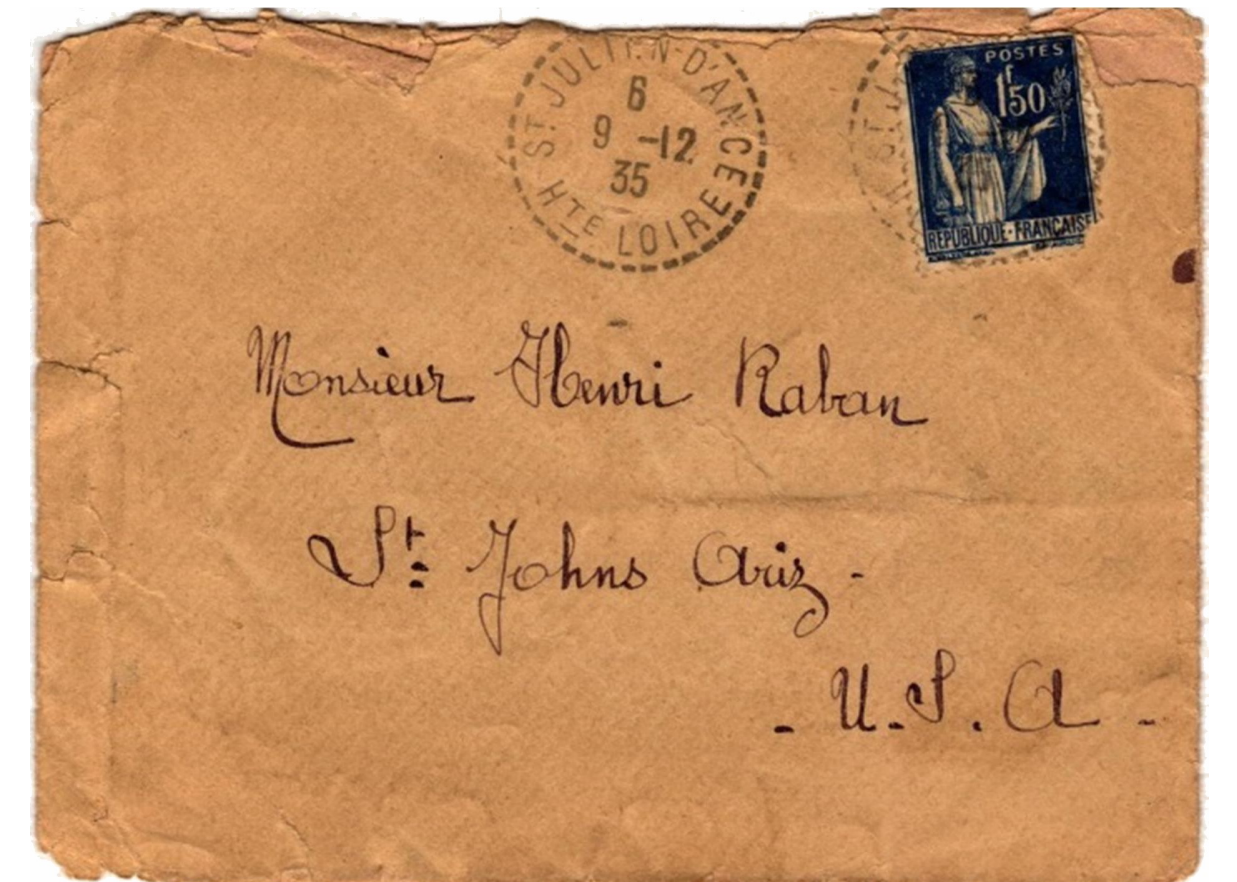 ST JULIEN-D'ANCE
6
9 -12
35
HTE LOIRE
POSTES
1f50
REPUBLIQUE-FRANÇAISE
Monsieur Henri Raban
St Johns Ariz -
- U.S.A -